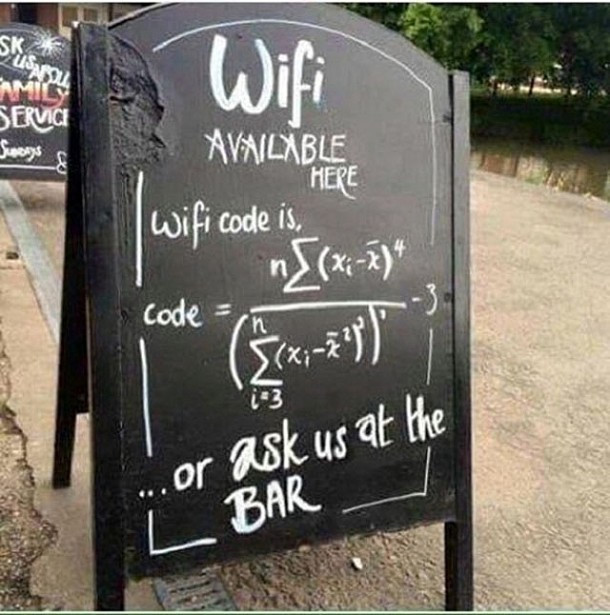 SK
US ABOU
FAMILY
SERVICE
Sundays
Wifi
AVAILABLE
HERE
Wifi code is,
n∑(xᵢ-x̄)⁴
code = ———— -3
n
(∑(xᵢ-x̄²)²)'
i=3
...or ask us at the
BAR